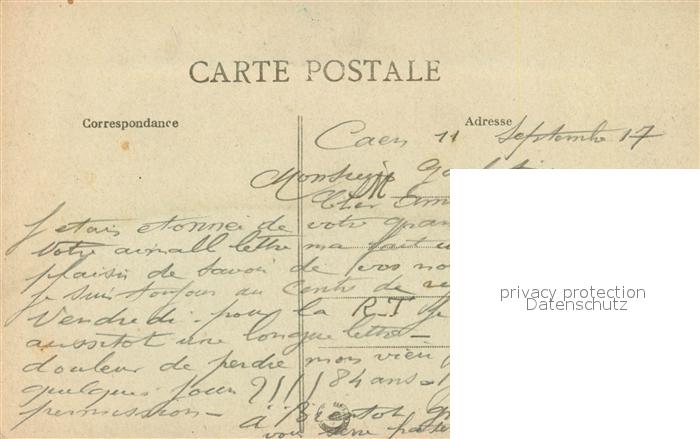 CARTE POSTALE
Correspondance
Adresse
Caen 11 Septembre 17
Monsieur
Cher Ami
J etais etonnei de votre
Votre aimall lettre ma fait
plaisir de savoir de vos
je suis toujours au Centre de
Vendredi - pour la R.T je
aussitot une longue lettre -
douleur de perdre mon vieu
quelques jours 84 ans -
permission -
à Bientot
vous serre
privacy protection
Datenschutz